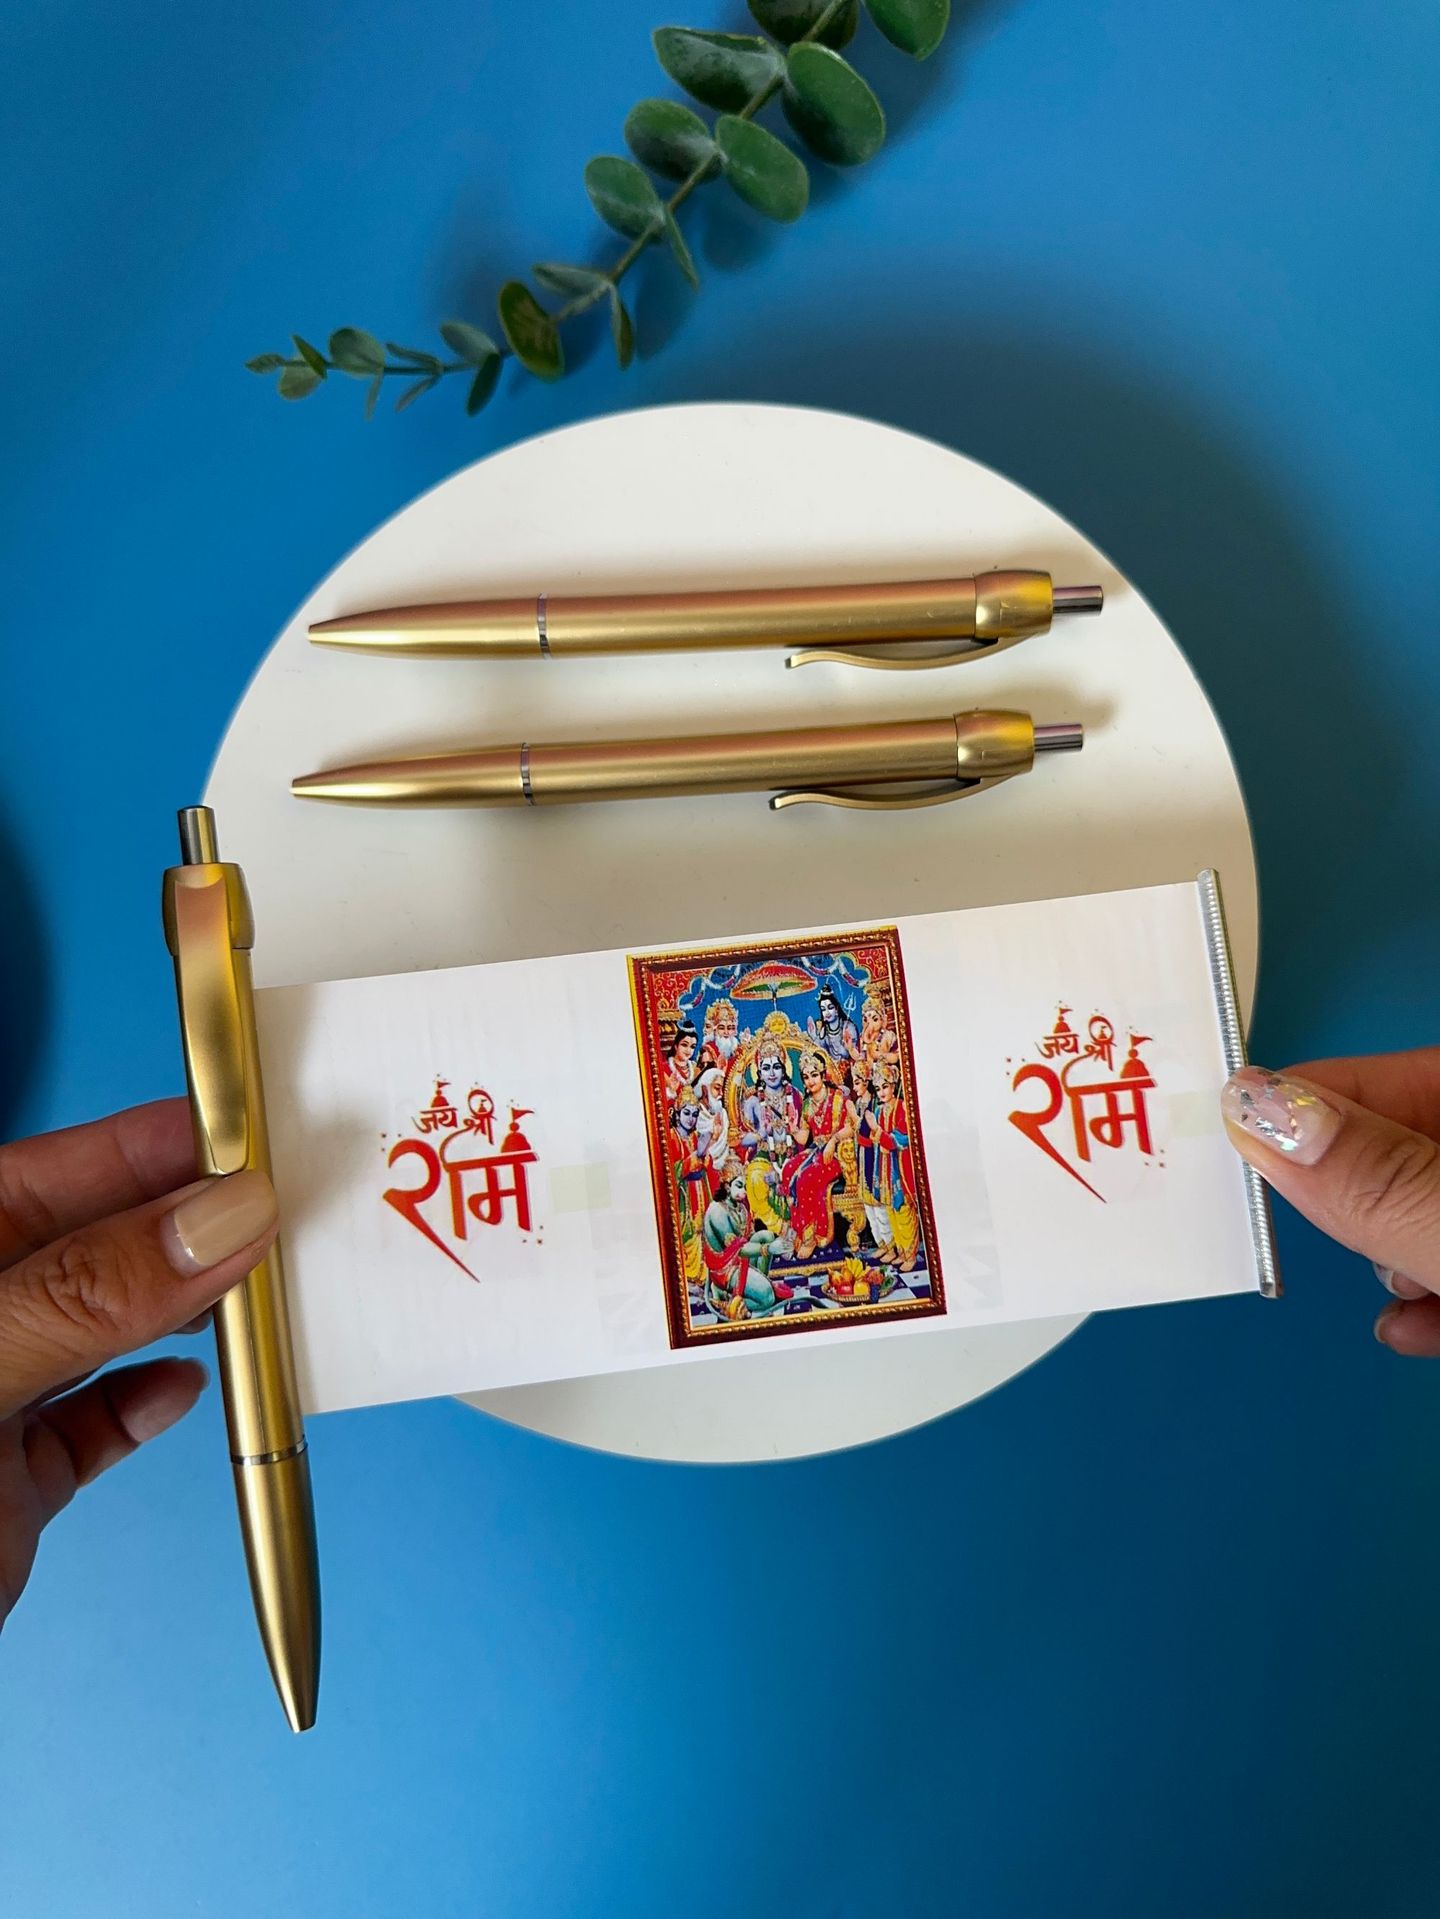 जय श्री
राम
जय श्री
राम